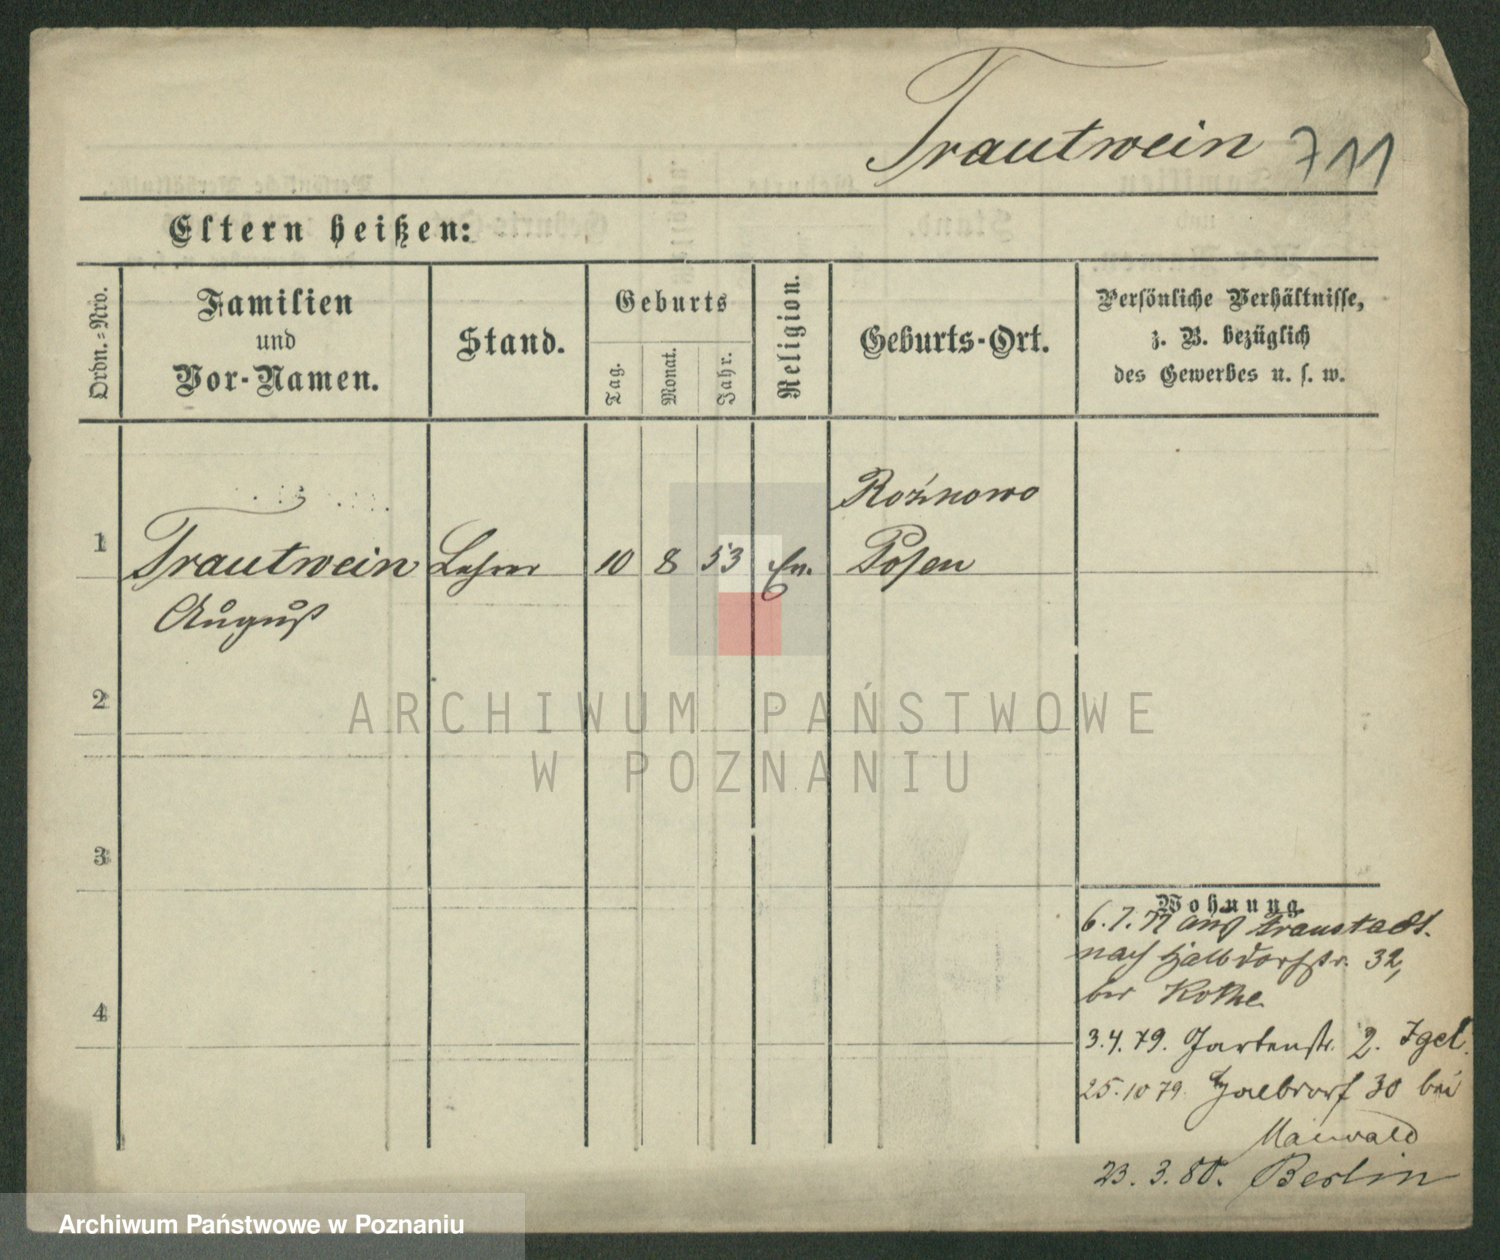 Trautwein 711
Eltern heißen:
Ordn.-Nro.
Familien
und
Vor-Namen.
Stand.
Geburts
Tag.
Monat.
Jahr.
Religion.
Geburts-Ort.
Persönliche Verhältnisse,
z. B. bezüglich
des Gewerbes u. s. w.
1
Trautwein
August
Lehrer
10
8
53
Ev.
Rożnowo
Posen
2
3
4
Wohnung
6. 7. 77 aus Fraustadt.
nach Halbdorfstr. 32,
bei Kothe
3. 4. 79. Gartenstr. 2. Igel.
25. 10 79. Halbdorf 30 bei
Maiwald
23. 3. 80. Berlin
ARCHIWUM PAŃSTWOWE
W POZNANIU
Archiwum Państwowe w Poznaniu